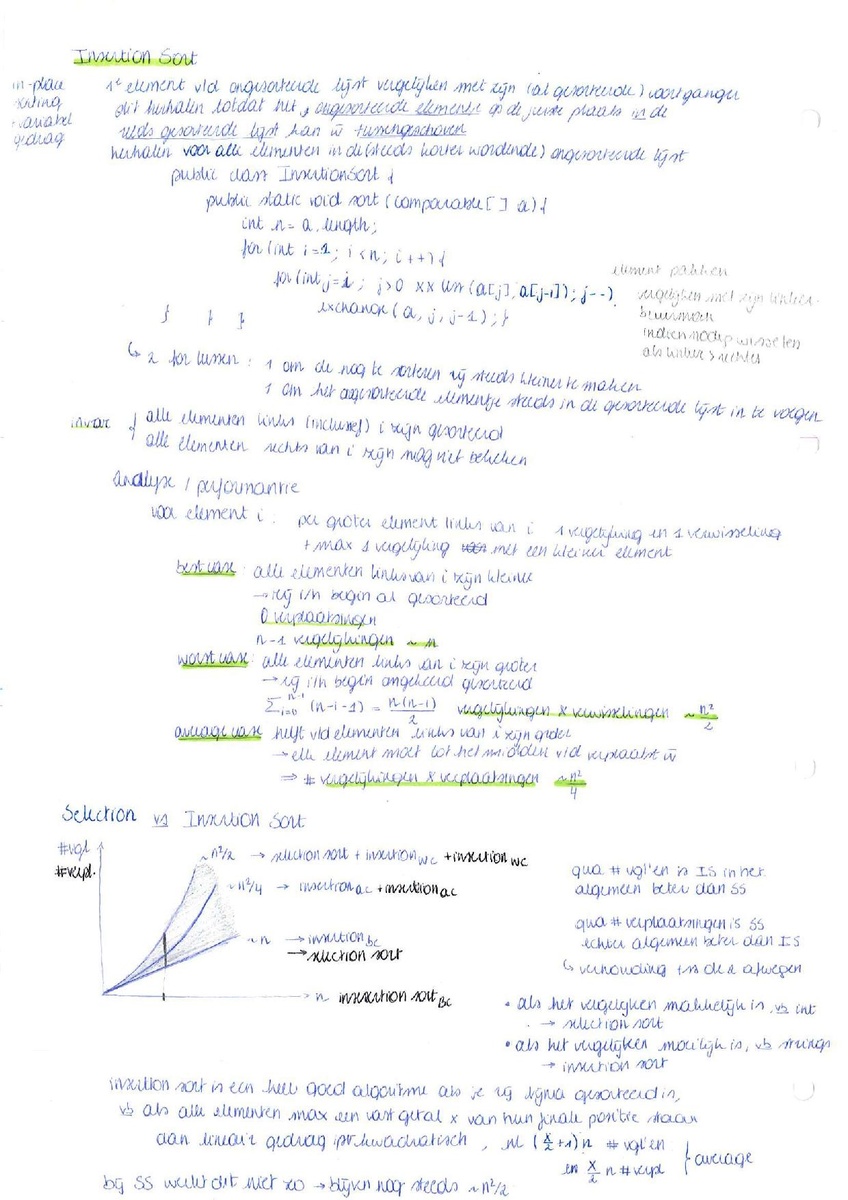 Insertion Sort
in-place
sorting
variabel
gedrag
1e element v/d ongesorteerde lijst vergelijken met zijn (al gesorteerde) voorganger
dit herhalen totdat het, ongesorteerde elementje op de juiste plaats in de
reeds gesorteerde lijst kan w tussengeschoven
herhalen voor alle elementen in de (steeds korter wordende) ongesorteerde lijst
public class InsertionSort {
public static void sort (comparable[] a) {
int n = a.length;
for (int i=1; i<n; i++) {
for (int j=i; j>0 && less (a[j], a[j-1]); j--)
exchange (a, j, j-1); }
} } }
element pakken
vergelijken met zijn linker-
buurman
indien nodig wisselen
als linker > rechter
↳ 2 for lussen: 1 om de nog te sorteren rij steeds kleiner te maken
1 om het ongesorteerde elementje steeds in de gesorteerde lijst in te voegen
invar { alle elementen links (inclusief) i zijn gesorteerd
alle elementen rechts van i zijn nog niet bekeken
Analyse / performantie
voor element i: per groter element links van i 1 vergelijking en 1 verwisseling
+ max 1 vergelijking met een kleiner element
best case: alle elementen links van i zijn kleiner
→ rij i/h begin al gesorteerd
0 verplaatsingen
n-1 vergelijkingen ~ n
worst case: alle elementen links van i zijn groter
→ rij i/h begin omgekeerd gesorteerd
∑ᵢ₌₀ⁿ⁻¹ (n-i-1) = n(n-1)/2 vergelijkingen & verwisselingen ~ n²/2
average case helft v/d elementen links van i zijn groter
→ elk element moet tot het midden v/d verplaatst w
⇒ # vergelijkingen & verplaatsingen ~ n²/4
Selection vs Insertion Sort
#vgl
#verpl.
~ n²/2 → selection sort + insection WC + insection WC
~ n²/4 → insertion AC + insertion AC
~ n → insertion BC
→ selection sort
n insertion sort BC
qua # vgl'en is IS in het
algemeen beter dan SS
qua # verplaatsingen is SS
echter algemeen beter dan IS
↳ verhouding tss de 2 afwegen
• als het vergelijken makkelijk is, vb int
→ selection sort
• als het vergelijken moeilijk is, vb strings
→ insertion sort
insertion sort is een heel goed algoritme als je rij bijna gesorteerd is,
vb als alle elementen max een vast getal x van hun finale positie staan
dan lineair gedrag ipv kwadratisch, nl (x/2+1)n # vgl'en
en x/2 n # verpl } average
bij SS werkt dit niet zo → blijven nog steeds ~ n²/2